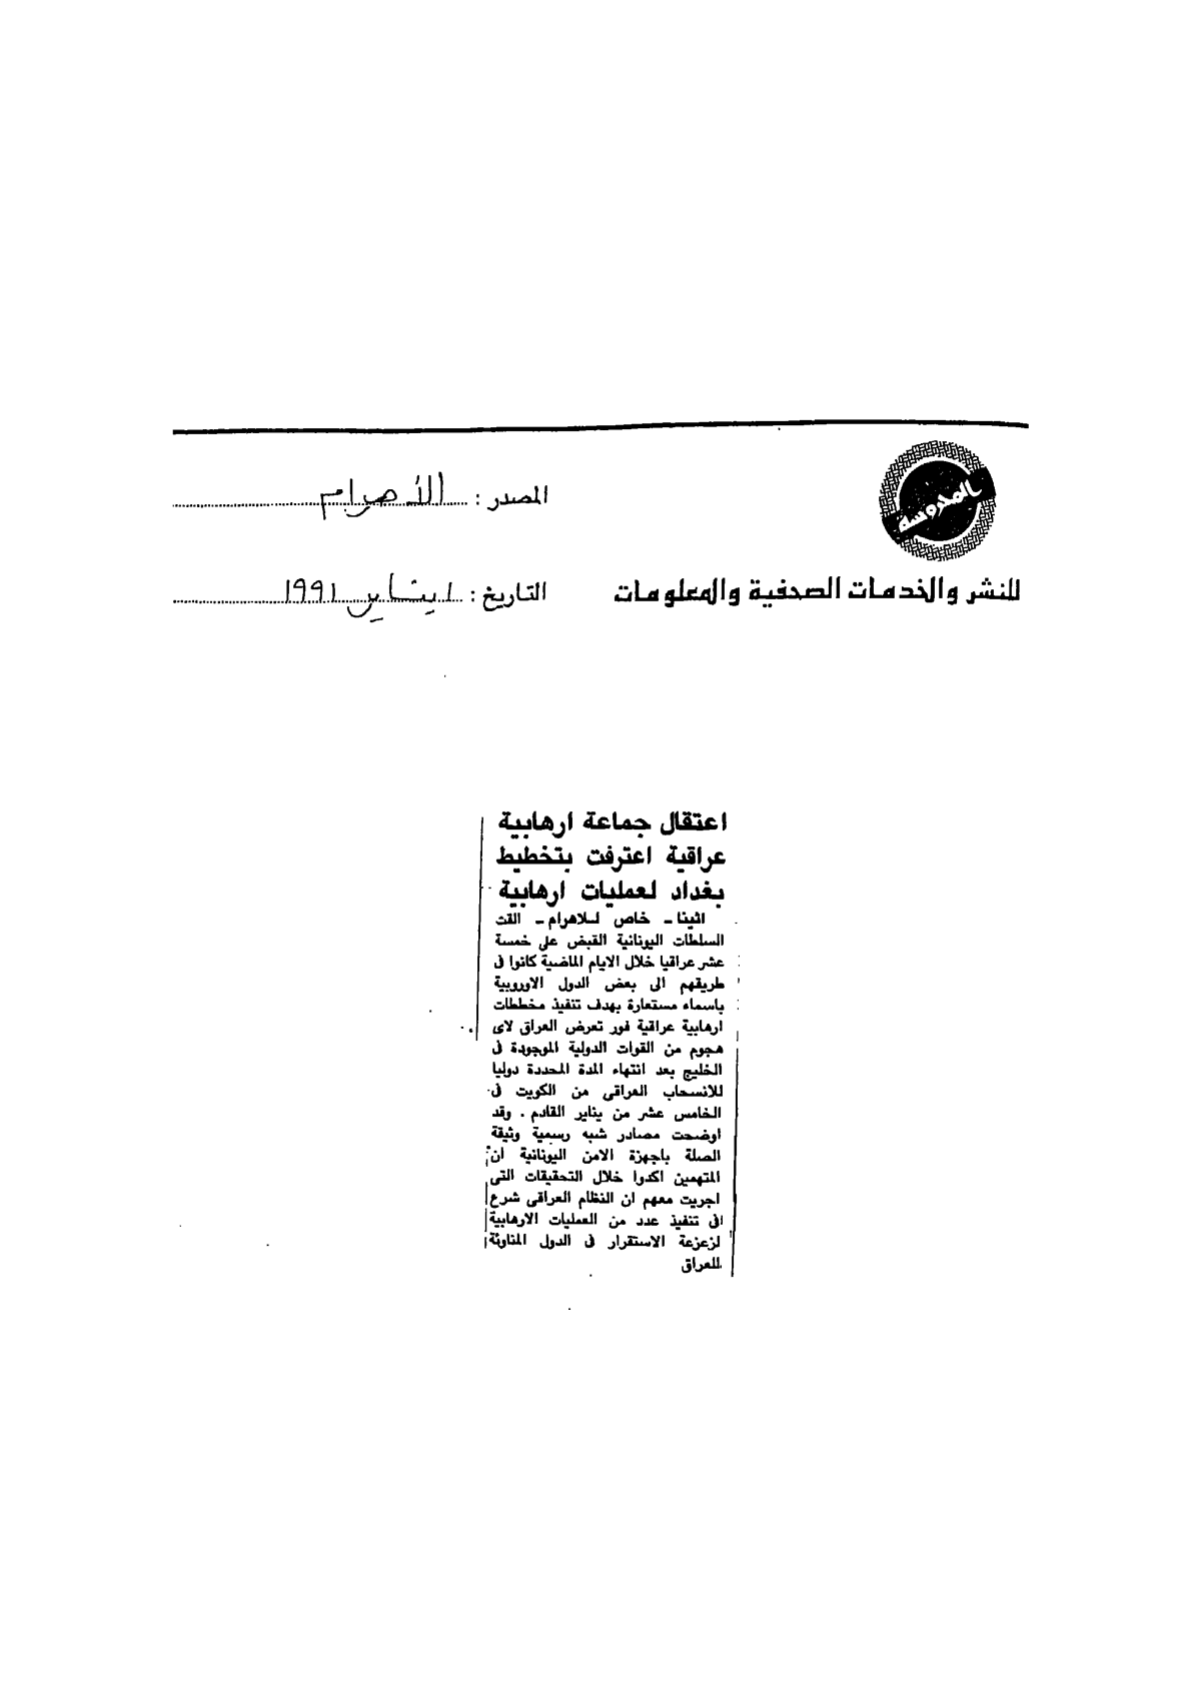 المحروسة
للنشر والخدمات الصحفية والمعلومات
المصدر : الأهرام
التاريخ : ١ يناير ١٩٩١
اعتقال جماعة ارهابية
عراقية اعترفت بتخطيط
بغداد لعمليات ارهابية
اثينا ـ خاص للاهرام ـ القت
السلطات اليونانية القبض على خمسة
عشر عراقيا خلال الايام الماضية كانوا فى
طريقهم الى بعض الدول الاوروبية
باسماء مستعارة بهدف تنفيذ مخططات
ارهابية عراقية فور تعرض العراق لاى
هجوم من القوات الدولية الموجودة فى
الخليج بعد انتهاء المدة المحددة دوليا
للانسحاب العراقى من الكويت فى
الخامس عشر من يناير القادم . وقد
اوضحت مصادر شبه رسمية وثيقة
الصلة باجهزة الامن اليونانية ان
المتهمين اكدوا خلال التحقيقات التى
اجريت معهم ان النظام العراقى شرع
فى تنفيذ عدد من العمليات الارهابية
لزعزعة الاستقرار فى الدول المناوئة
للعراق